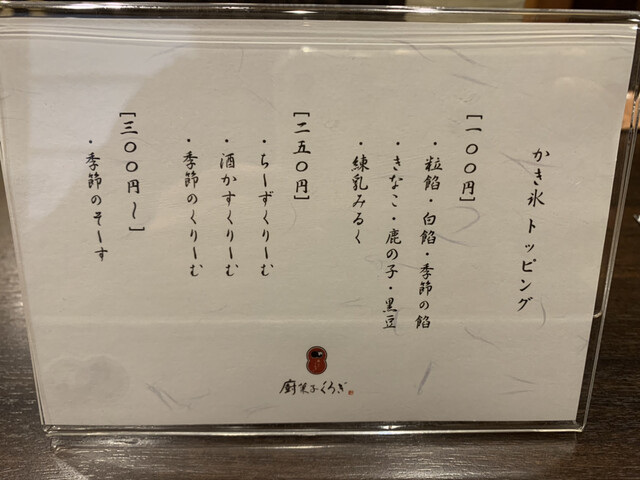 かき氷 トッピング
[一〇〇円]
・粒餡・白餡・季節の餡
・きなこ・鹿の子・黒豆
・練乳みるく
[二五〇円]
・ちーずくりーむ
・酒かすくりーむ
・季節のくりーむ
[三〇〇円〜]
・季節のそーす
廚菓子くろぎ